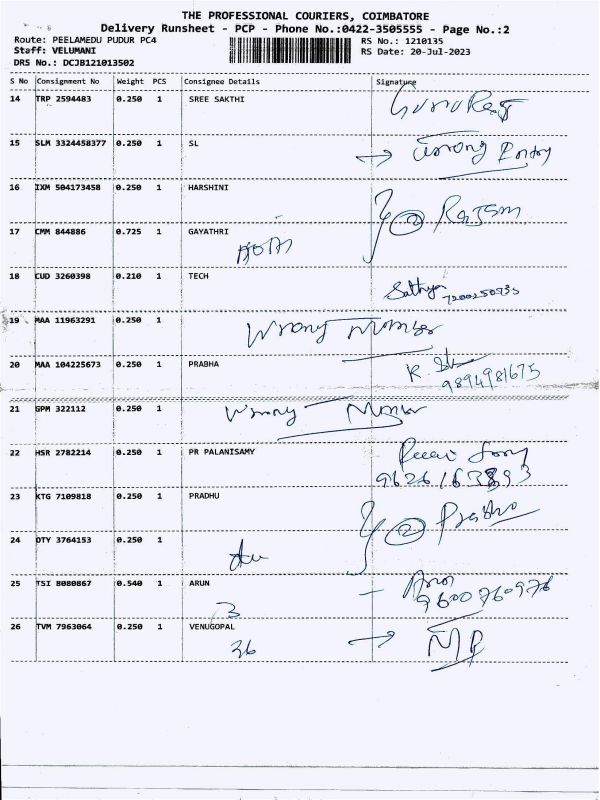 THE PROFESSIONAL COURIERS, COIMBATORE
Delivery Runsheet - PCP - Phone No.:0422-3505555 - Page No.:2
Route: PEELAMEDU PUDUR PC4 RS No.: 1210135
Staff: VELUMANI RS Date: 20-Jul-2023
DRS No.: DCJB121013502
S No Consignment No Weight PCS Consignee Details Signature
14 TRP 2594483 0.250 1 SREE SAKTHI
15 SLM 3324458377 0.250 1 SL
Wrong Entry
16 IXM 504173458 0.250 1 HARSHINI
17 CMM 844886 0.725 1 GAYATHRI
18 CUD 3260398 0.210 1 TECH
Sathya
7200250935
19 MAA 11963291 0.250 1
Wrong Number
20 MAA 104225673 0.250 1 PRABHA
9894981675
21 GPM 322112 0.250 1
Wrong Number
22 HSR 2782214 0.250 1 PR PALANISAMY
23 KTG 7109818 0.250 1 PRADHU
24 OTY 3764153 0.250 1
25 TSI 8080867 0.540 1 ARUN
9600760976
3
26 TVM 7963064 0.250 1 VENUGOPAL
36